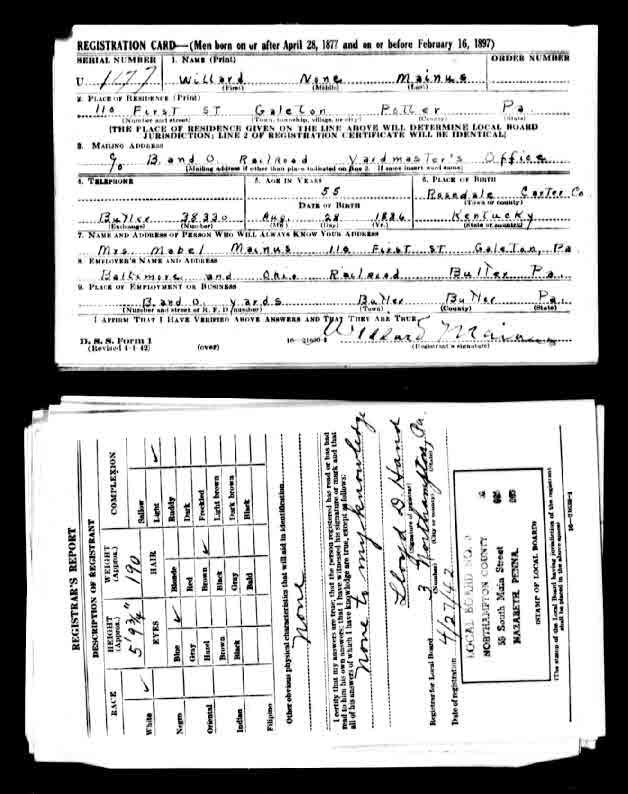 REGISTRATION CARD—(Men born on or after April 28, 1877 and on or before February 16, 1897)
SERIAL NUMBER 1. NAME (Print) ORDER NUMBER
U 1177 Willard None Mainus
(First) (Middle) (Last)
2. PLACE OF RESIDENCE (Print)
110 First ST Galeton Potter Pa.
(Number and street) (Town, township, village, or city) (County) (State)
[THE PLACE OF RESIDENCE GIVEN ON THE LINE ABOVE WILL DETERMINE LOCAL BOARD
JURISDICTION; LINE 2 OF REGISTRATION CERTIFICATE WILL BE IDENTICAL]
3. MAILING ADDRESS
% B. and O. Railroad Yardmaster's Office
[Mailing address if other than place indicated on line 2. If same insert word same]
4. TELEPHONE 5. AGE IN YEARS 6. PLACE OF BIRTH
55 Rosedale Carter Co
DATE OF BIRTH (Town or county)
Butler 38330 Aug. 28 1886 Kentucky
(Exchange) (Number) (Mo.) (Day) (Yr.) (State or country)
7. NAME AND ADDRESS OF PERSON WHO WILL ALWAYS KNOW YOUR ADDRESS
Mrs. Mabel Mainus 110 First ST Galeton, Pa.
8. EMPLOYER'S NAME AND ADDRESS
Baltimore and Ohio Railroad Butler Pa.
9. PLACE OF EMPLOYMENT OR BUSINESS
B. and O. Yards Butler Butler Pa.
(Number and street or R. F. D. number) (Town) (County) (State)
I AFFIRM THAT I HAVE VERIFIED ABOVE ANSWERS AND THAT THEY ARE TRUE.
Willard Mainus
D. S. S. Form 1
(Revised 4-1-42) (over) 16—21630-2 (Registrant's signature)
REGISTRAR'S REPORT
DESCRIPTION OF REGISTRANT
RACE HEIGHT (Approx.) WEIGHT (Approx.) COMPLEXION
5' 9 3/4" 190
EYES HAIR
White ✓ Blue ✓ Blonde Sallow
Light ✓
Negro Gray Red Ruddy
Dark
Oriental Hazel Brown ✓ Freckled
Brown Black Light brown
Indian Black Gray Dark brown
Bald Black
Filipino
Other obvious physical characteristics that will aid in identification
None
I certify that my answers are true; that the person registered has read or has had
read to him his own answers; that I have witnessed his signature or mark and that
all of his answers of which I have knowledge are true, except as follows:
None to my knowledge
Lloyd D Hand
(Signature of registrar)
Registrar for Local Board 3 Northampton, Pa.
(Number) (City or county) (State)
Date of registration 4/27/42
LOCAL BOARD NO. 3
NORTHAMPTON COUNTY
55 South Main Street
NAZARETH, PENNA.
(STAMP OF LOCAL BOARD)
(The stamp of the Local Board having jurisdiction of the registrant
shall be placed in the above space)